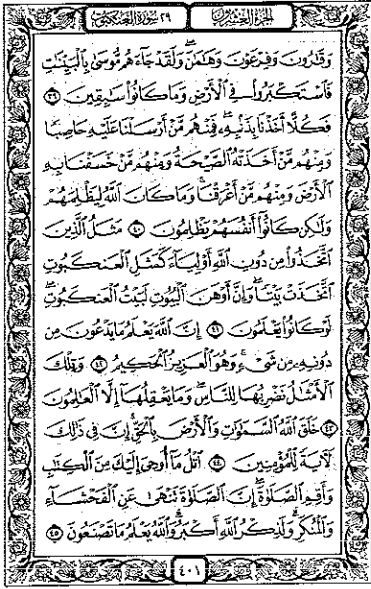 الجزء العشرون ٢٩ سورة العنكبوت
وَقَٰرُونَ وَفِرْعَوْنَ وَهَٰمَٰنَ ۖ وَلَقَدْ جَآءَهُم مُّوسَىٰ بِٱلْبَيِّنَٰتِ
فَٱسْتَكْبَرُوا۟ فِى ٱلْأَرْضِ وَمَا كَانُوا۟ سَٰبِقِينَ ٣٩
فَكُلًّا أَخَذْنَا بِذَنۢبِهِۦ ۖ فَمِنْهُم مَّنْ أَرْسَلْنَا عَلَيْهِ حَاصِبًا
وَمِنْهُم مَّنْ أَخَذَتْهُ ٱلصَّيْحَةُ وَمِنْهُم مَّنْ خَسَفْنَا بِهِ
ٱلْأَرْضَ وَمِنْهُم مَّنْ أَغْرَقْنَا ۚ وَمَا كَانَ ٱللَّهُ لِيَظْلِمَهُمْ
وَلَٰكِن كَانُوٓا۟ أَنفُسَهُمْ يَظْلِمُونَ ٤٠ مَثَلُ ٱلَّذِينَ
ٱتَّخَذُوا۟ مِن دُونِ ٱللَّهِ أَوْلِيَآءَ كَمَثَلِ ٱلْعَنكَبُوتِ
ٱتَّخَذَتْ بَيْتًا ۖ وَإِنَّ أَوْهَنَ ٱلْبُيُوتِ لَبَيْتُ ٱلْعَنكَبُوتِ ۖ
لَوْ كَانُوا۟ يَعْلَمُونَ ٤١ إِنَّ ٱللَّهَ يَعْلَمُ مَا يَدْعُونَ مِن
دُونِهِۦ مِن شَىْءٍ ۚ وَهُوَ ٱلْعَزِيزُ ٱلْحَكِيمُ ٤٢ وَتِلْكَ
ٱلْأَمْثَٰلُ نَضْرِبُهَا لِلنَّاسِ ۖ وَمَا يَعْقِلُهَآ إِلَّا ٱلْعَٰلِمُونَ
٤٣ خَلَقَ ٱللَّهُ ٱلسَّمَٰوَٰتِ وَٱلْأَرْضَ بِٱلْحَقِّ ۚ إِنَّ فِى ذَٰلِكَ
لَءَايَةً لِّلْمُؤْمِنِينَ ٤٤ ٱتْلُ مَآ أُوحِىَ إِلَيْكَ مِنَ ٱلْكِتَٰبِ
وَأَقِمِ ٱلصَّلَوٰةَ ۖ إِنَّ ٱلصَّلَوٰةَ تَنْهَىٰ عَنِ ٱلْفَحْشَآءِ
وَٱلْمُنكَرِ ۗ وَلَذِكْرُ ٱللَّهِ أَكْبَرُ ۗ وَٱللَّهُ يَعْلَمُ مَا تَصْنَعُونَ ٤٥
٤٠١